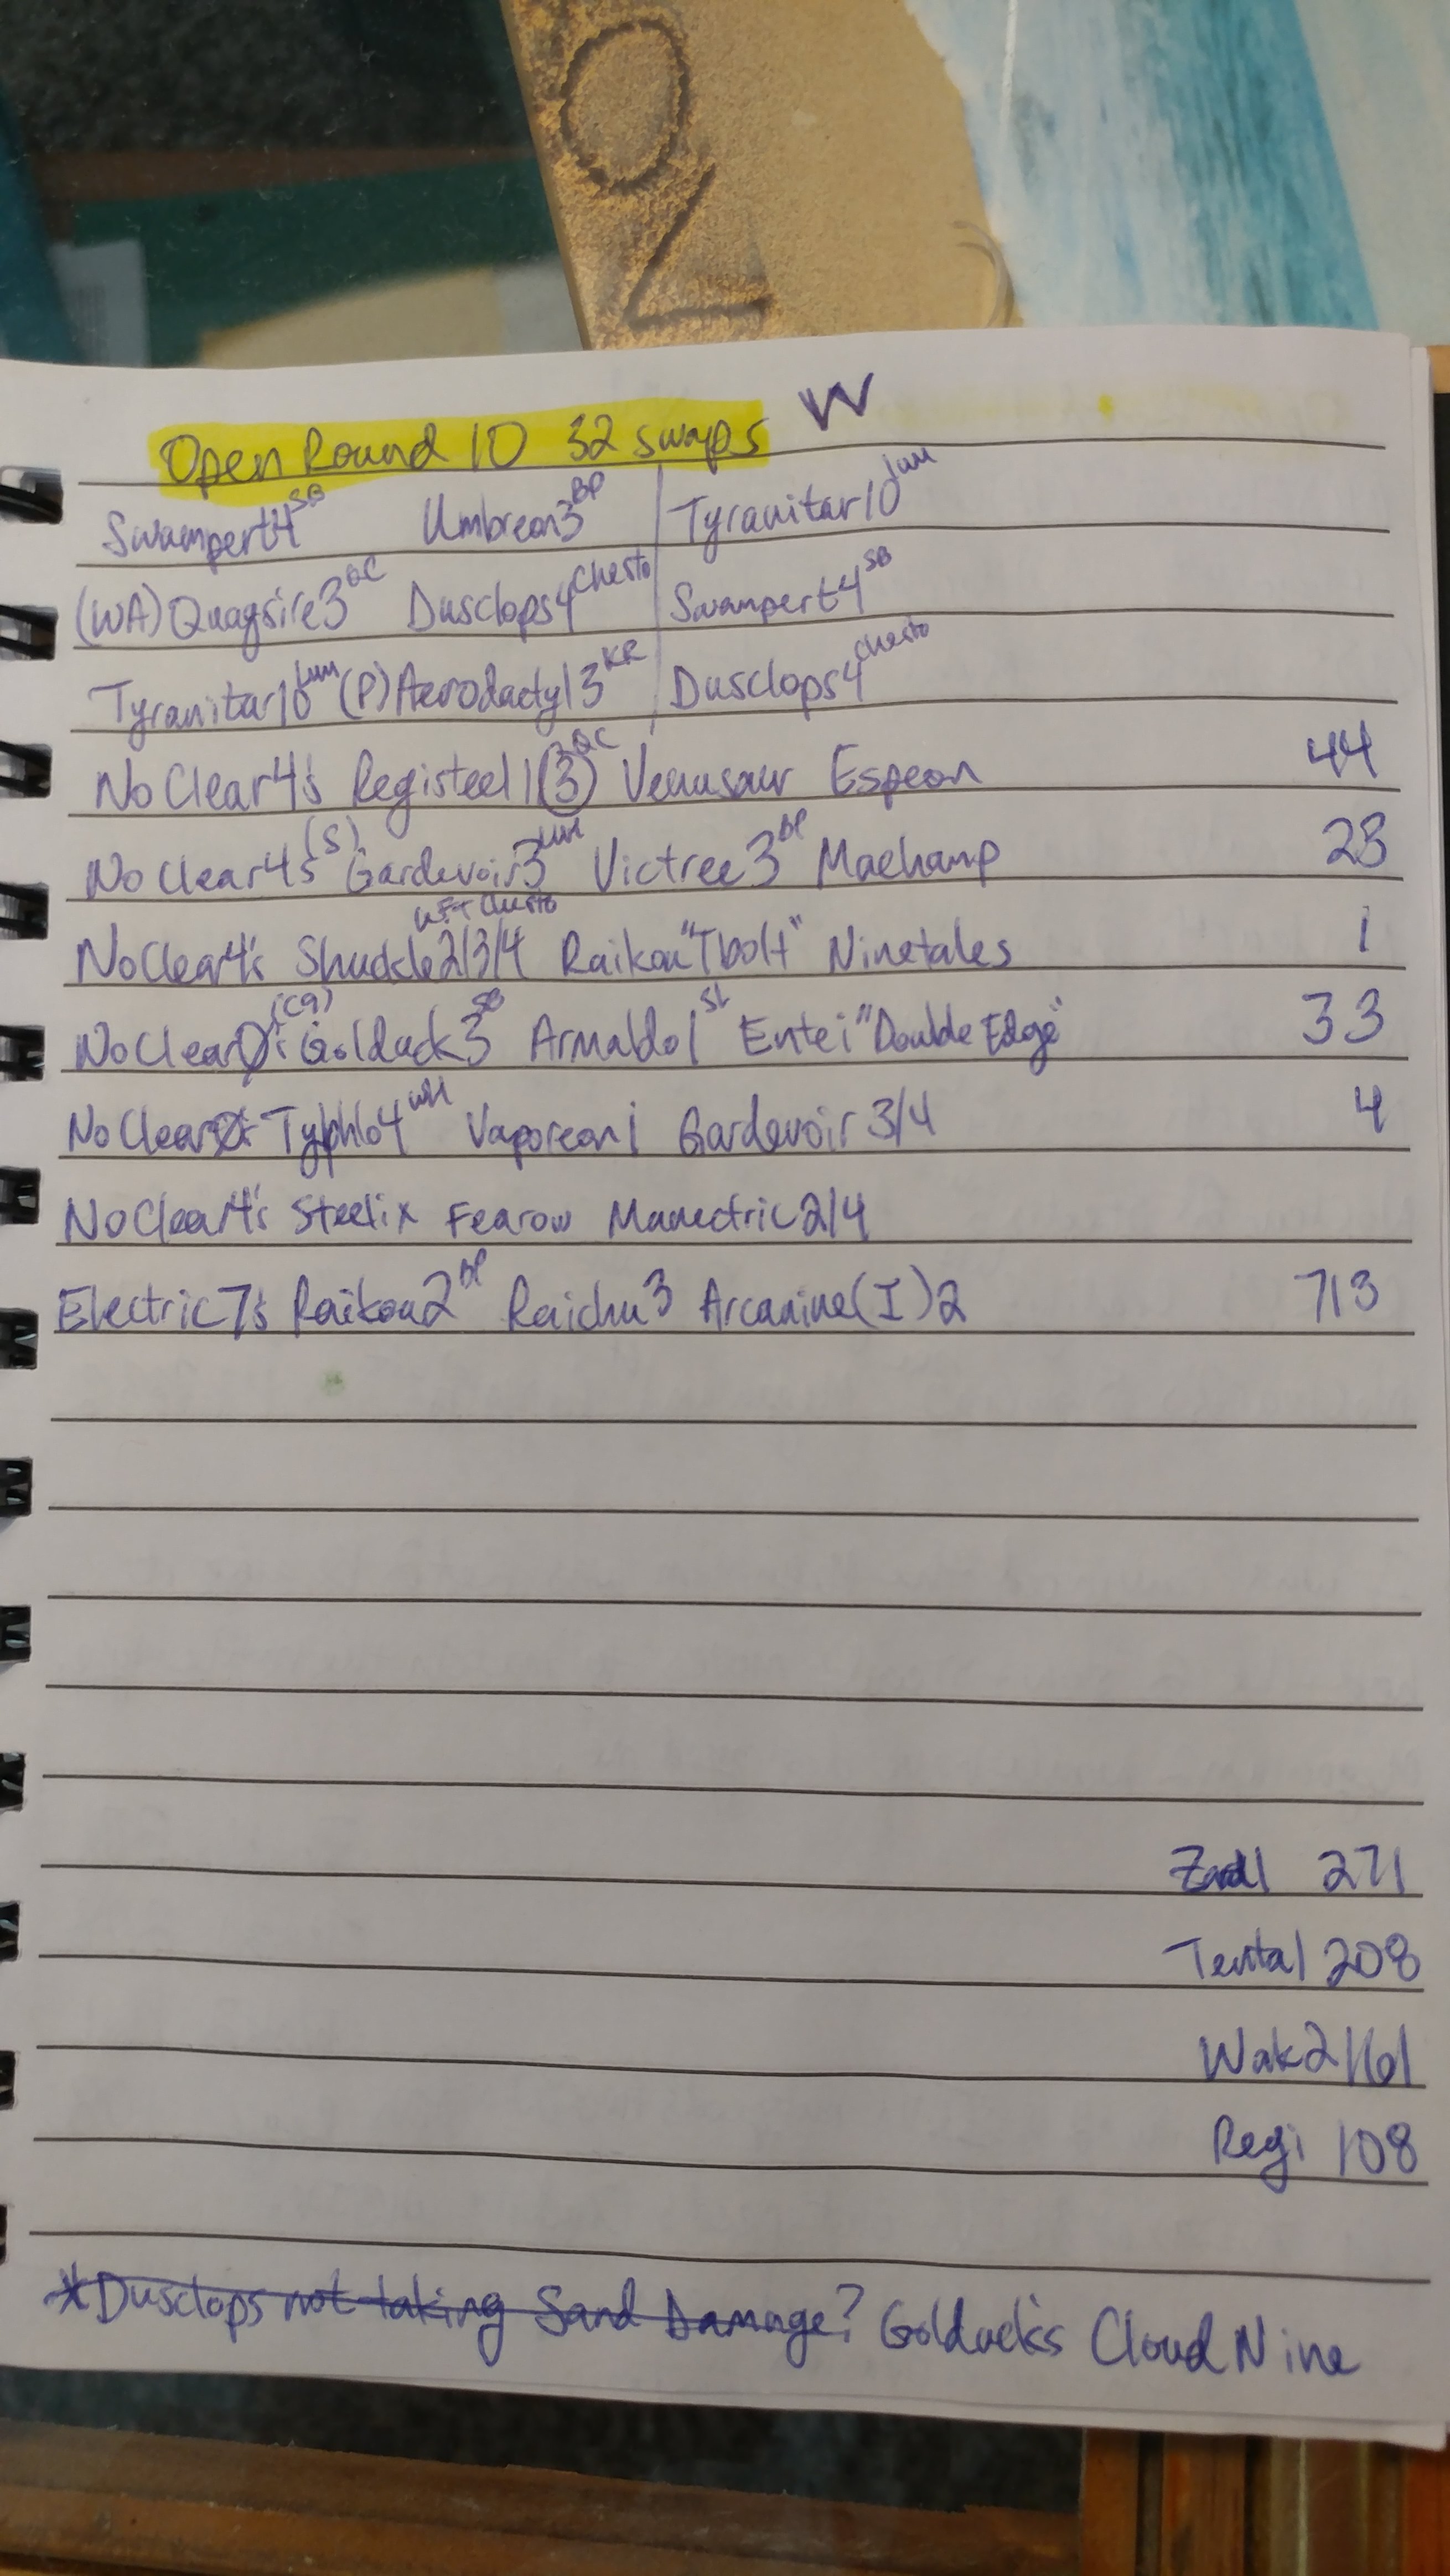 Open Round 10 32 swaps W
Swampert4 SB Umbreon3 BP Tyranitar10 Lum
(WA)Quagsire3 QC Dusclops4 Chesto Swampert4 SB
Tyranitar10 Lum (P)Aerodactyl3 KR Dusclops4 Chesto
No Clear4's Registeel1(3) QC Venusaur Espeon 44
No Clear4's (S)Gardevoir3 Lum Victree3 BP Machamp 23
No Clear4's Shuckle2/3/4 Chesto Raikou "Tbolt" Ninetales 1
No Clear (C9)Golduck3 SB Armaldo1 SL Entei "Double Edge" 33
No Clear Typhlo4 WH Vaporeon1 Gardevoir3/4 4
No Clear4's Steelix Fearow Manectric2/4
Electric7's Raikou2 BP Raichu3 Arcanine(I)2 713
Zard1 271
Tenta1 208
Wak2 161
Regi 108
*Dusclops not taking Sand Damage? Golduck's Cloud Nine